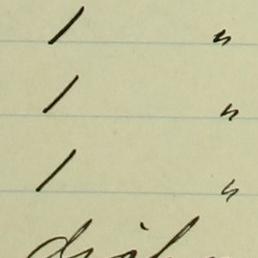 1 "
1 "
1 "